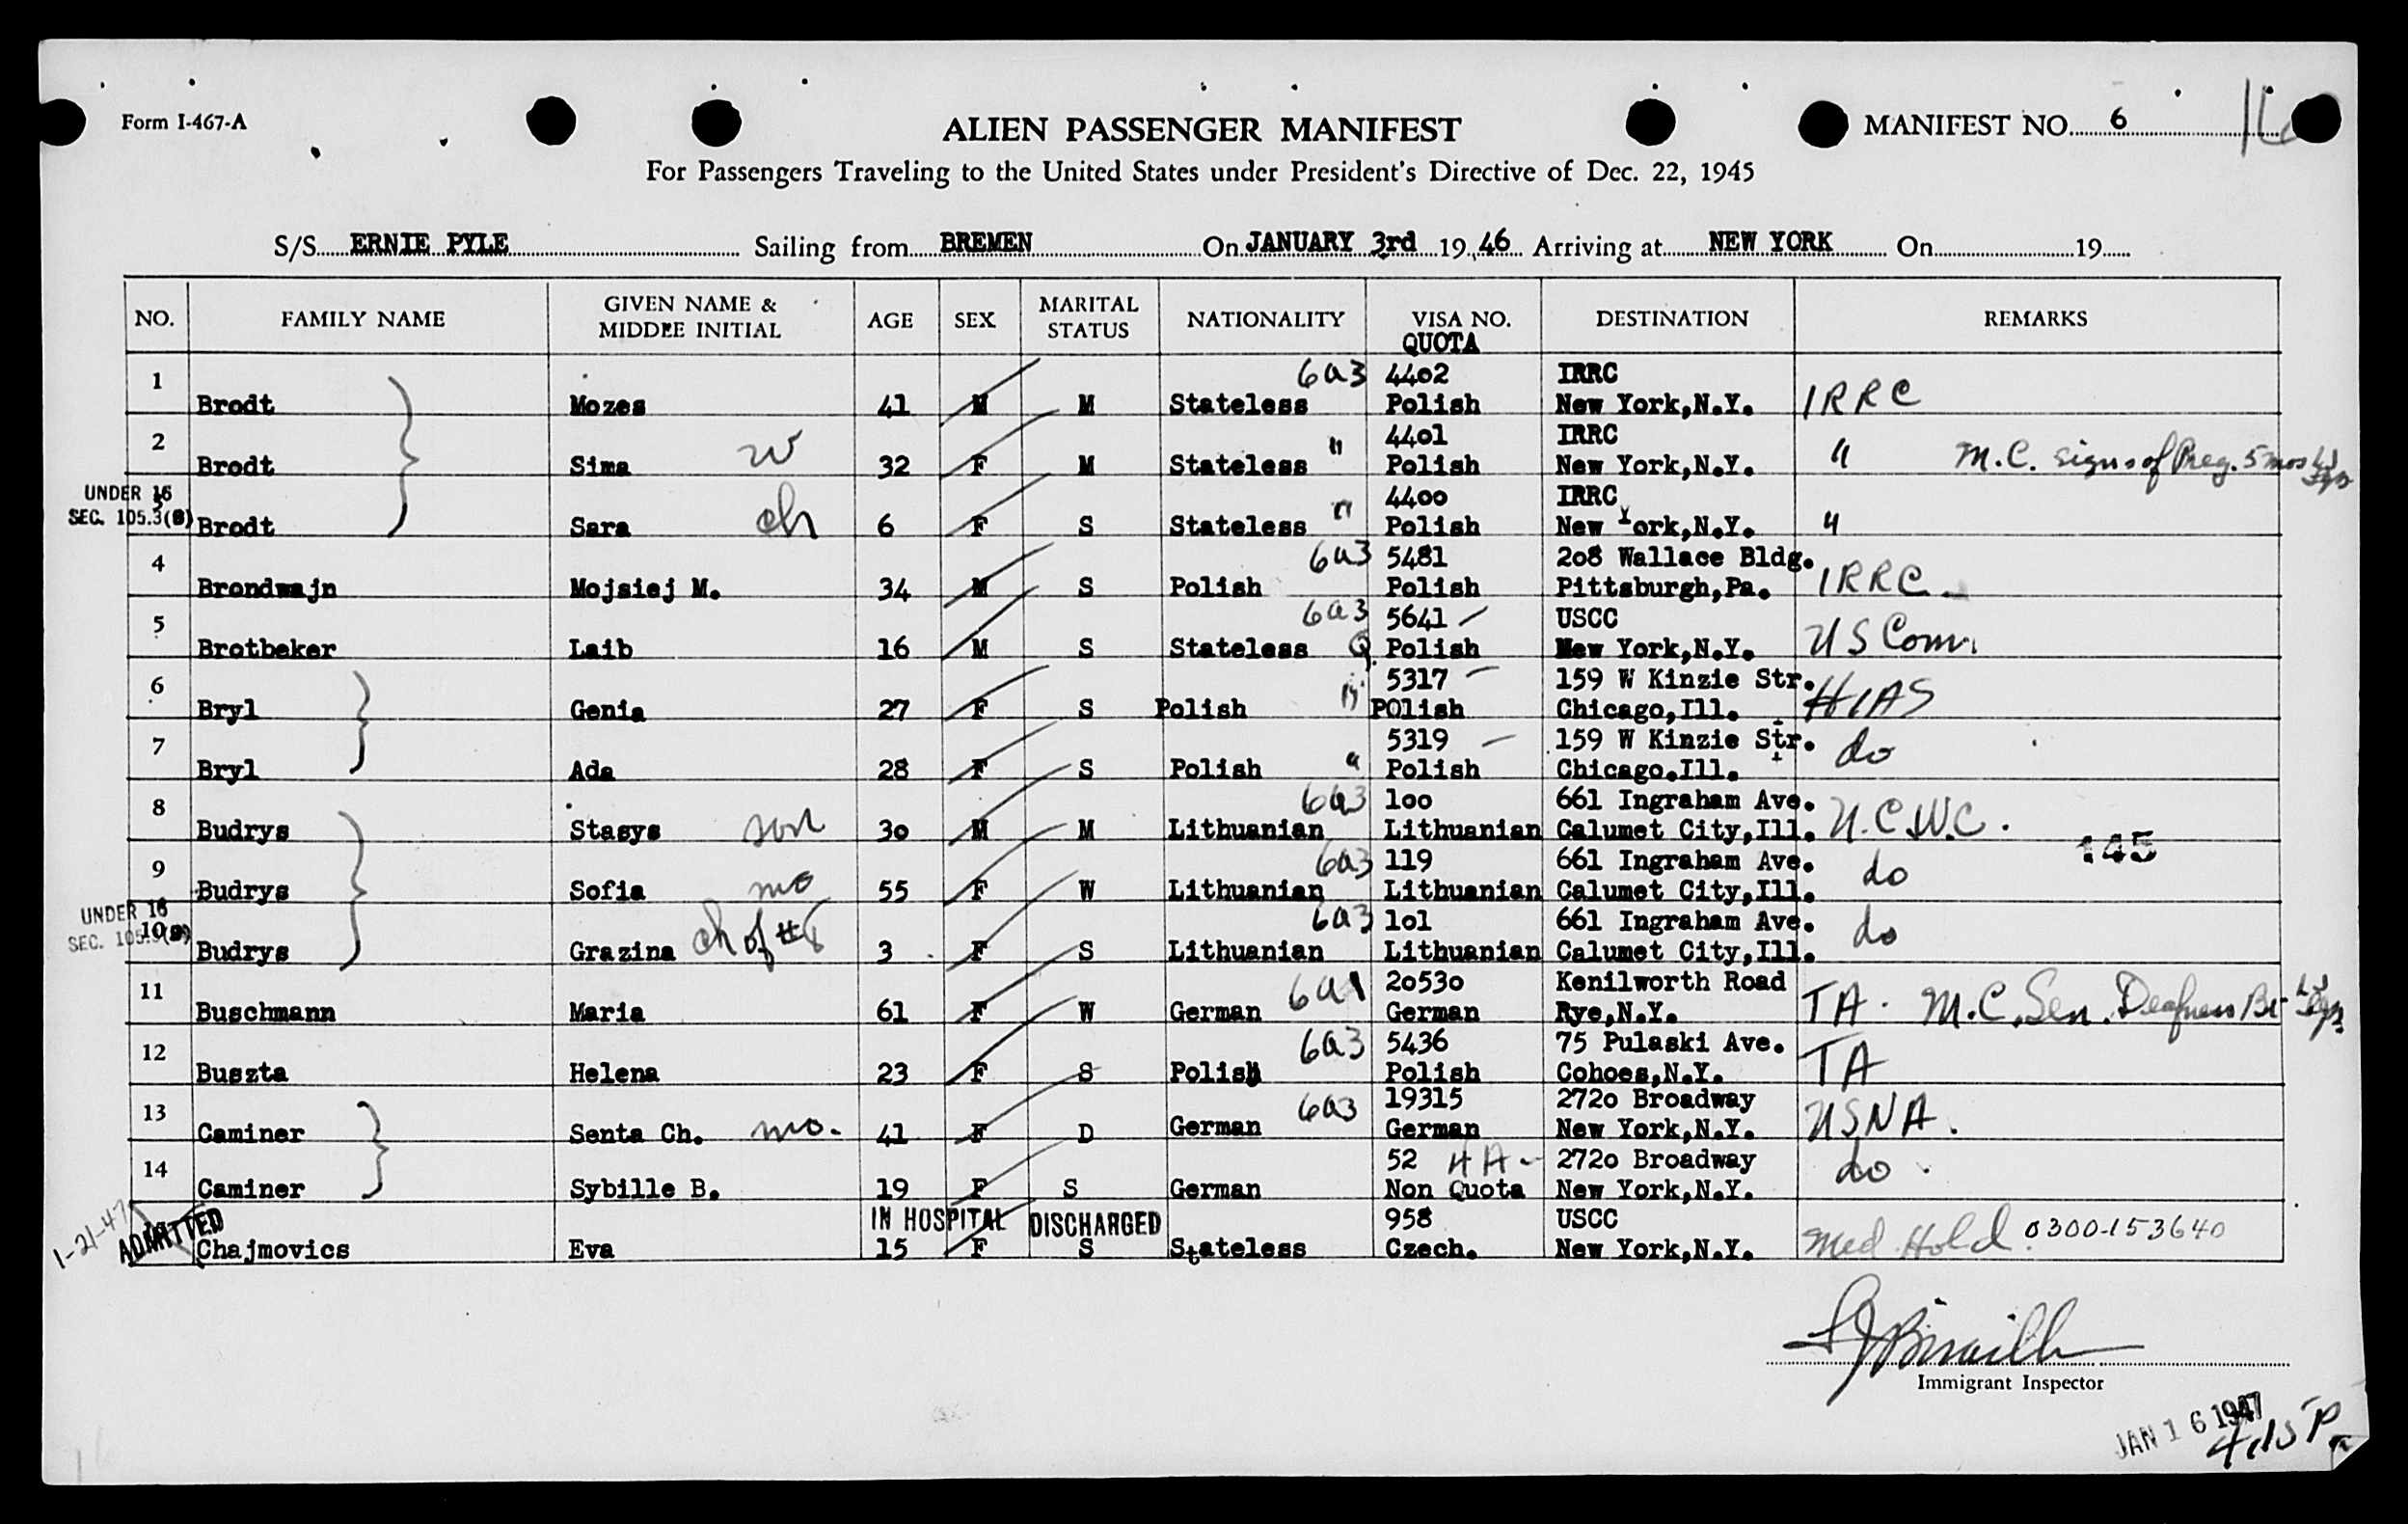 Form I-467-A
ALIEN PASSENGER MANIFEST
MANIFEST NO. 6
16
For Passengers Traveling to the United States under President's Directive of Dec. 22, 1945
S/S ERNIE PYLE Sailing from BREMEN On JANUARY 3rd 19 46 Arriving at NEW YORK On 19
NO. FAMILY NAME GIVEN NAME & MIDDLE INITIAL AGE SEX MARITAL STATUS NATIONALITY VISA NO. QUOTA DESTINATION REMARKS
1 6a3 4402 IRRC
Brodt Mozes 41 M M Stateless Polish New York,N.Y. IRRC
2 " 4401 IRRC
Brodt Sima w 32 F M Stateless Polish New York,N.Y. " M.C. signs of Preg. 5 mos
UNDER 16 3 " 4400 IRRC
SEC. 105.3(B) Brodt Sara ch 6 F S Stateless Polish New York,N.Y. "
4 6a3 5481 208 Wallace Bldg.
Brondwajn Mojsiej M. 34 M S Polish Polish Pittsburgh,Pa. IRRC
5 6a3 5641 USCC
Brotbeker Laib 16 M S Stateless Q Polish New York,N.Y. US Com.
6 " 5317 159 W Kinzie Str.
Bryl Genia 27 F S Polish POlish Chicago,Ill. HIAS
7 5319 159 W Kinzie Str.
Bryl Ada 28 F S Polish " Polish Chicago.Ill. do
8 6a3 1oo 661 Ingraham Ave.
Budrys Stasys son 3o M M Lithuanian Lithuanian Calumet City,Ill. N.C.W.C.
145
9 6a3 119 661 Ingraham Ave.
Budrys Sofia mo 55 F W Lithuanian Lithuanian Calumet City,Ill. do
UNDER 16 10 6a3 1o1 661 Ingraham Ave.
SEC. 105.3(B) Budrys Grazina ch of #8 3 F S Lithuanian Lithuanian Calumet City,Ill. do
11 6a1 2o53o Kenilworth Road
Buschmann Maria 61 F W German German Rye,N.Y. TA. M.C. Sen. Deafness
12 6a3 5436 75 Pulaski Ave.
Buszta Helena 23 F S Polish Polish Cohoes,N.Y. TA
13 6a3 19315 272o Broadway
Caminer Senta Ch. mo. 41 F D German German New York,N.Y. USNA.
14 52 4A- 272o Broadway
Caminer Sybille B. 19 F S German Non Quota New York,N.Y. do
1-21-47 ADMITTED IN HOSPITAL DISCHARGED 958 USCC
Chajmovics Eva 15 F S Stateless Czech. New York,N.Y. Med. Hold 0300-153640
Immigrant Inspector
JAN 16 1947
4:15 P